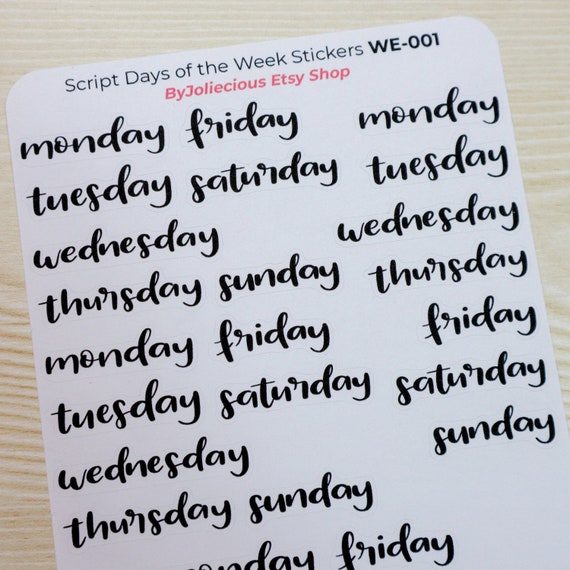 Script Days of the Week Stickers WE-001
ByJoliecious Etsy Shop
monday friday monday
tuesday saturday tuesday
wednesday wednesday
thursday sunday thursday
monday friday friday
tuesday saturday saturday
wednesday sunday
thursday sunday
monday friday